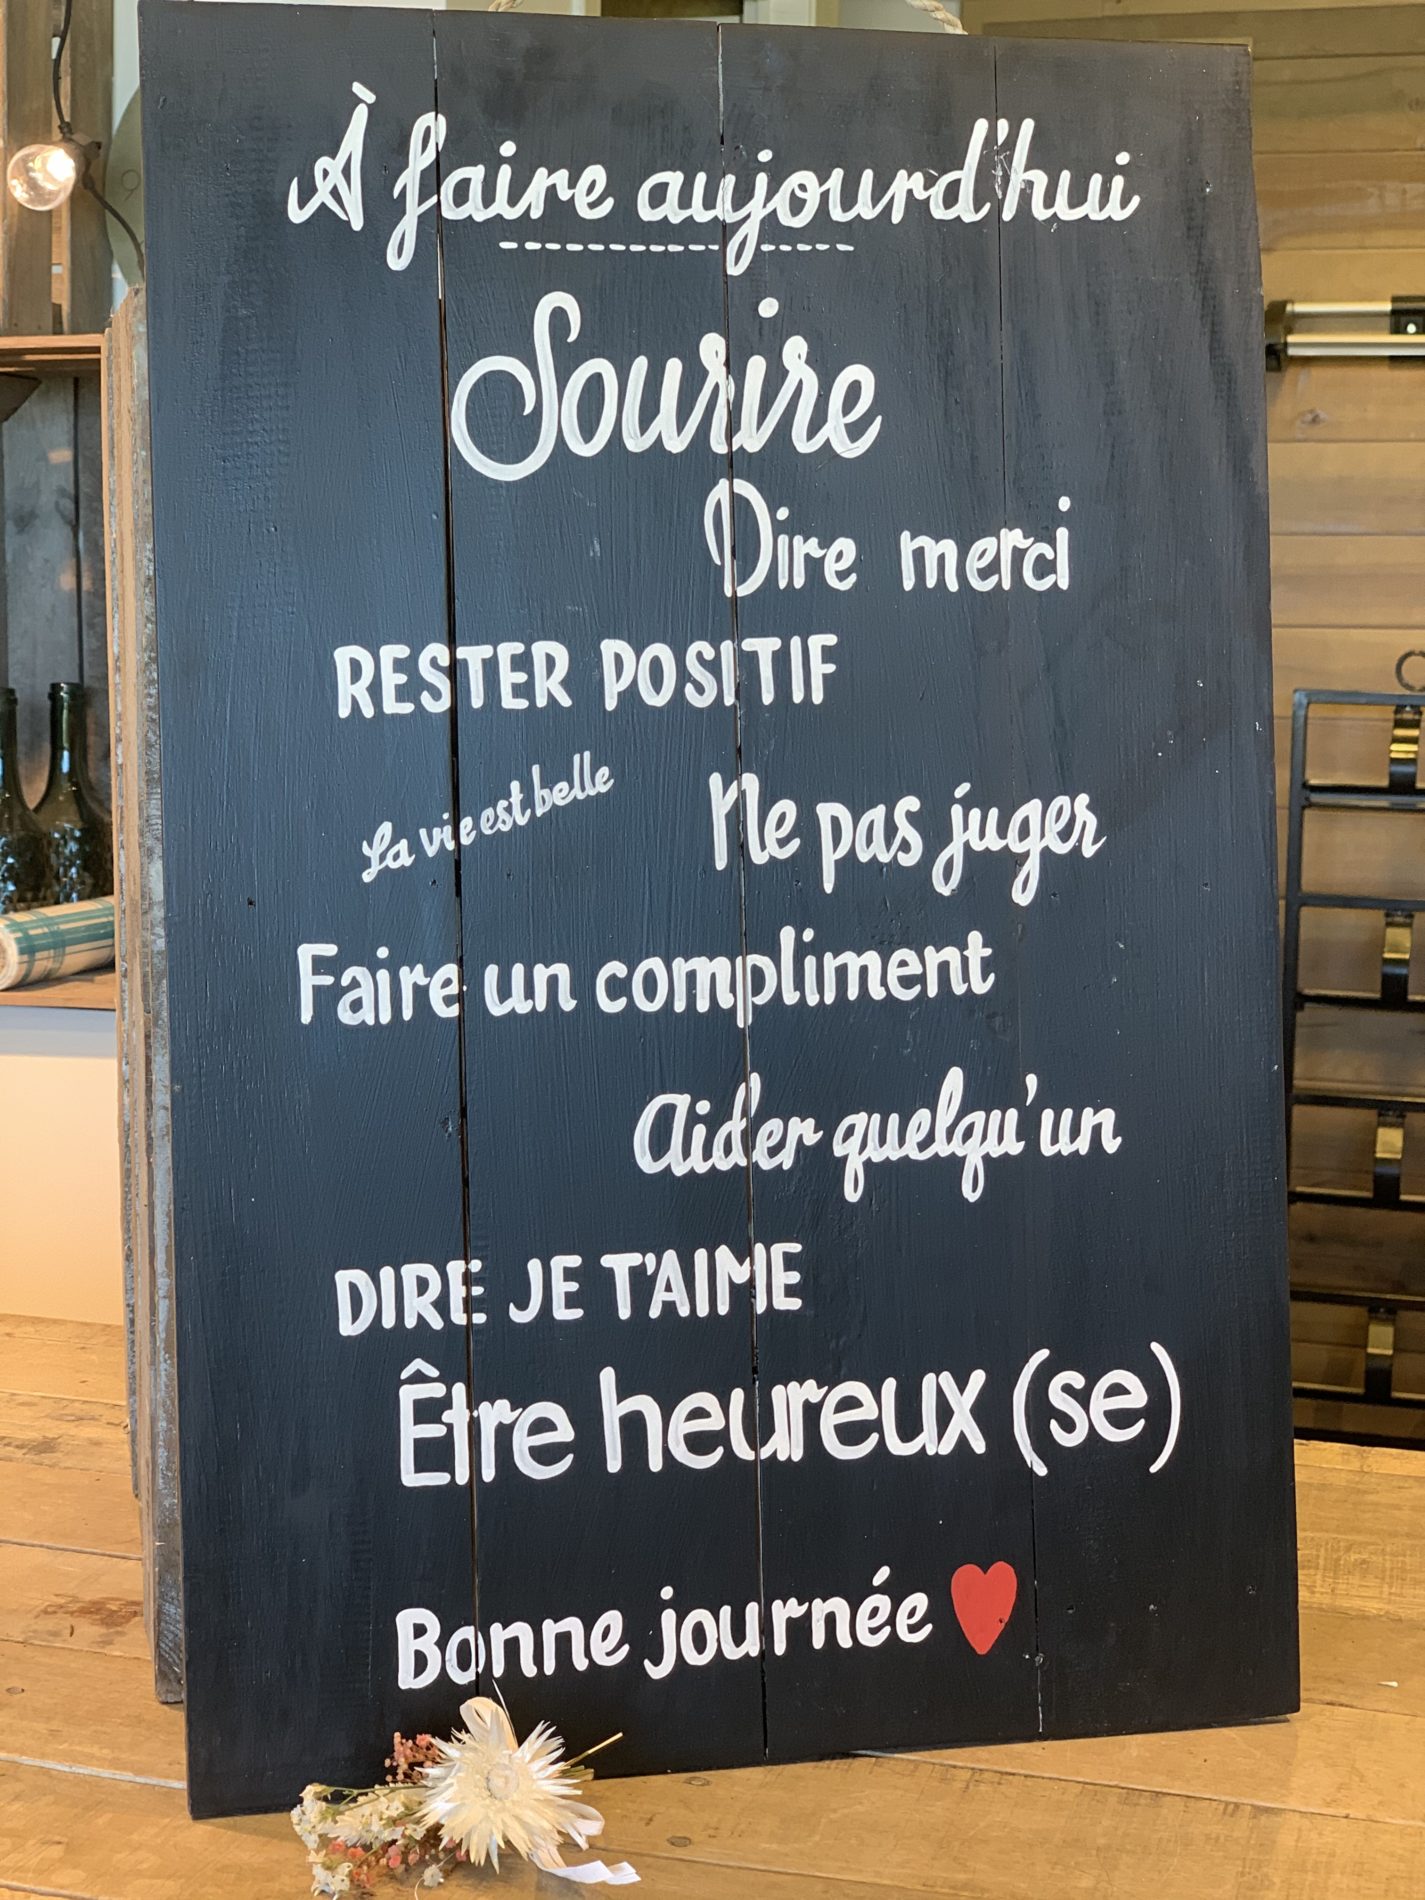 À faire aujourd'hui
Sourire
Dire merci
RESTER POSITIF
La vie est belle
Ne pas juger
Faire un compliment
Aider quelqu'un
DIRE JE T'AIME
Être heureux (se)
Bonne journée